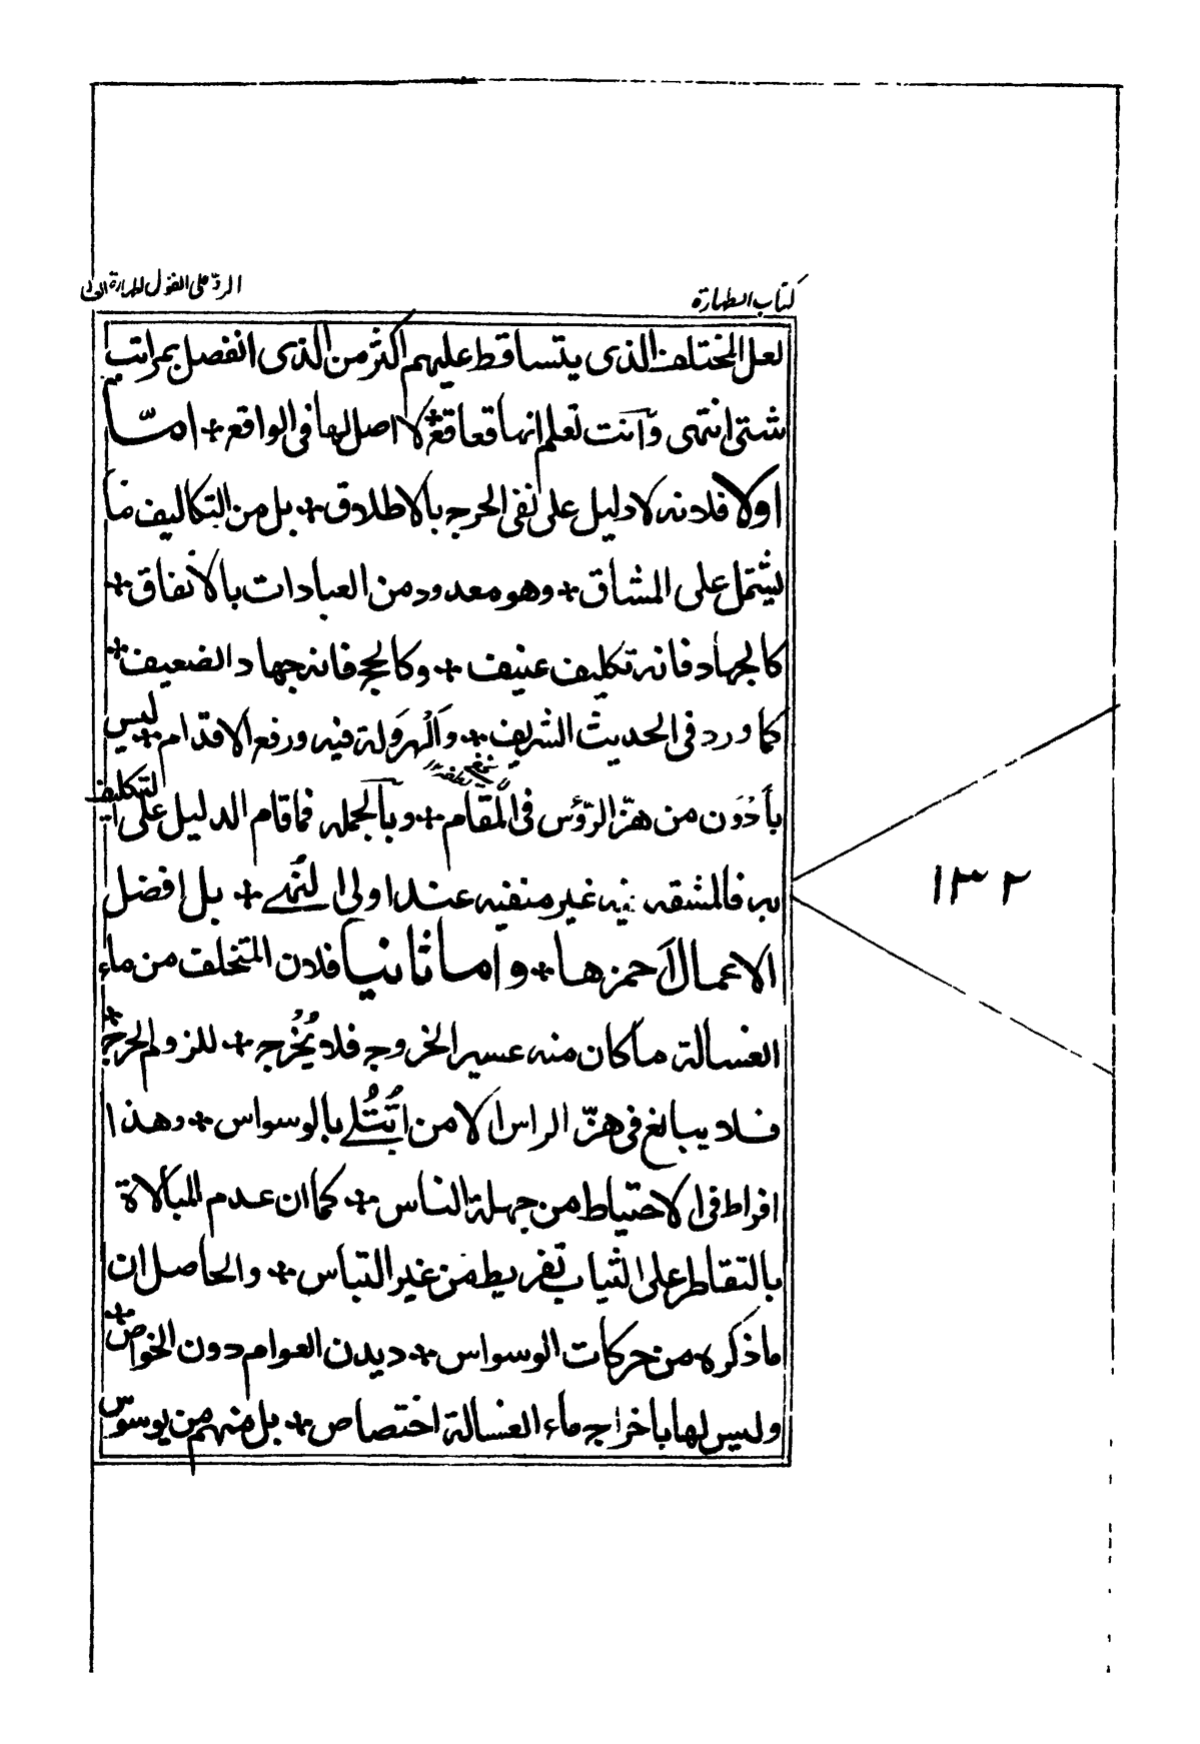 كتاب الطهارة
الردّ على القول لطهارة
لعل المختلف الذى يتساقط عليهم اكثر من الذى انفصل بمراتب
شتى انتهى وآنت تعلم انها قعاقع لا اصل لها فى الواقع + امّا
اولا فلانه لا دليل على نفى الحرج بالاطلاق + بل من التكاليف ما
يشتمل على المشاق + وهو معدود من العبادات بالاتفاق +
كالجهاد فانه تكليف عنيف + وكالحج فانه جهاد الضعيف +
كما ورد فى الحديث الشريف + وَالْهَرْوَلة فيه ورفع الاقدام + ليس
بأَدْوَن من هزّ الرّؤس فى المقام + وبآلجمله فما قام الدليل على التكليف
به فالمشقه فيه غير منفيه عند اولى النُّهى + بل افضل
الاعمال آحمزها + واما ثانيا فلان المتخلف من ماء
الغسالة ما كان منه عسير الخروج فلا يُخْرُج + للزوم الحرج +
فلا يبالغ فى هزّ الراس الا من ابُتُلى بالوسواس + وهذا
افراط فى الاحتياط من جهلة الناس + كما ان عدم المبالاة
بالتقاطر على الثياب تفريط من غير التباس + والحاصل ان
ما ذكره من حركات الوسواس + ديدن العوام دون الخواص +
وليس لها باخراج ماء الغسالة اختصاص + بل منهم من يوسوس
١٣٢